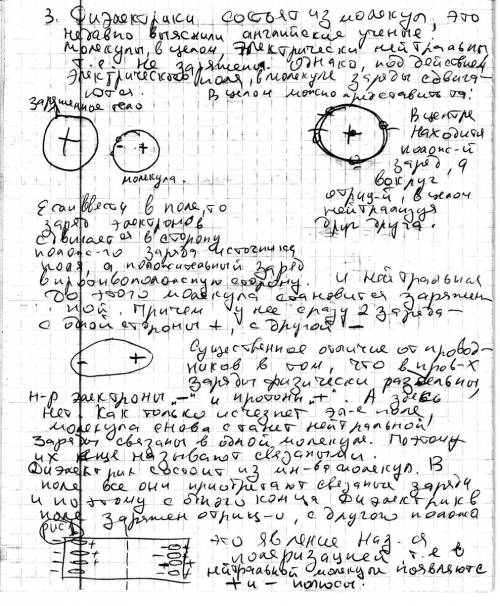 3. Диэлектрики состоят из молекул, это
недавно выяснили английские ученые,
молекулы, в целом, электрически нейтральны
т.е. не заряжены. Однако, под действием
электрического поля, в молекуле заряды сдвига-
ются. В целом можно представить та:
Заряженное тело
+
- +
молекула.
+
В центре
находится
полож-й
заряд, а
вокруг
отриц-й, в целом
нейтрализуя
друг друга.
Если ввести в поле, то
заряд электронов
сдвигается в сторону
полож-го заряда источника
поля, а положительный заряд
в противоположную сторону. И нейтральная
до этого молекула становится заряжен
ной. Причем у нее сразу 2 заряда -
с одной стороны +, с другой -
- +
Существенное отличие от провод-
ников в том, что в пров-х
заряды физически раздельны,
н-р электроны "-" и протоны "+". А здесь,
нет. Как только исчезнет эл-е поле,
молекула снова станет нейтральной,
заряды связаны в одной молекуле. Поэтому
их еще называют связаными.
Диэлектрик состоит из мн-ва молекул. В
поле все они приобритают связаный заряд
и поэтому с одного конца диэлектрик в
поле заряжен отриц-о, с другого положа
рис
это явление наз-ся
поляризацией т.е. в
нейтральной молекуле появляютс
+ и - полюсы.